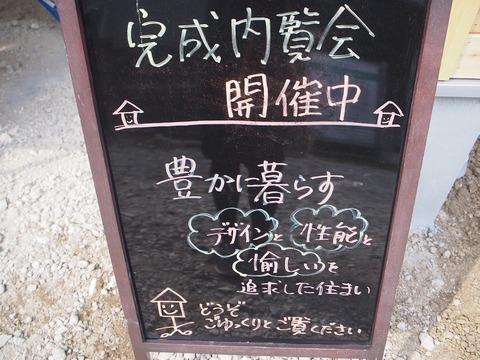 完成内覧会
開催中
豊かに暮らす
デザインと性能と
愉しいを
追求した住まい
どうぞ
ごゆっくりとご覧ください